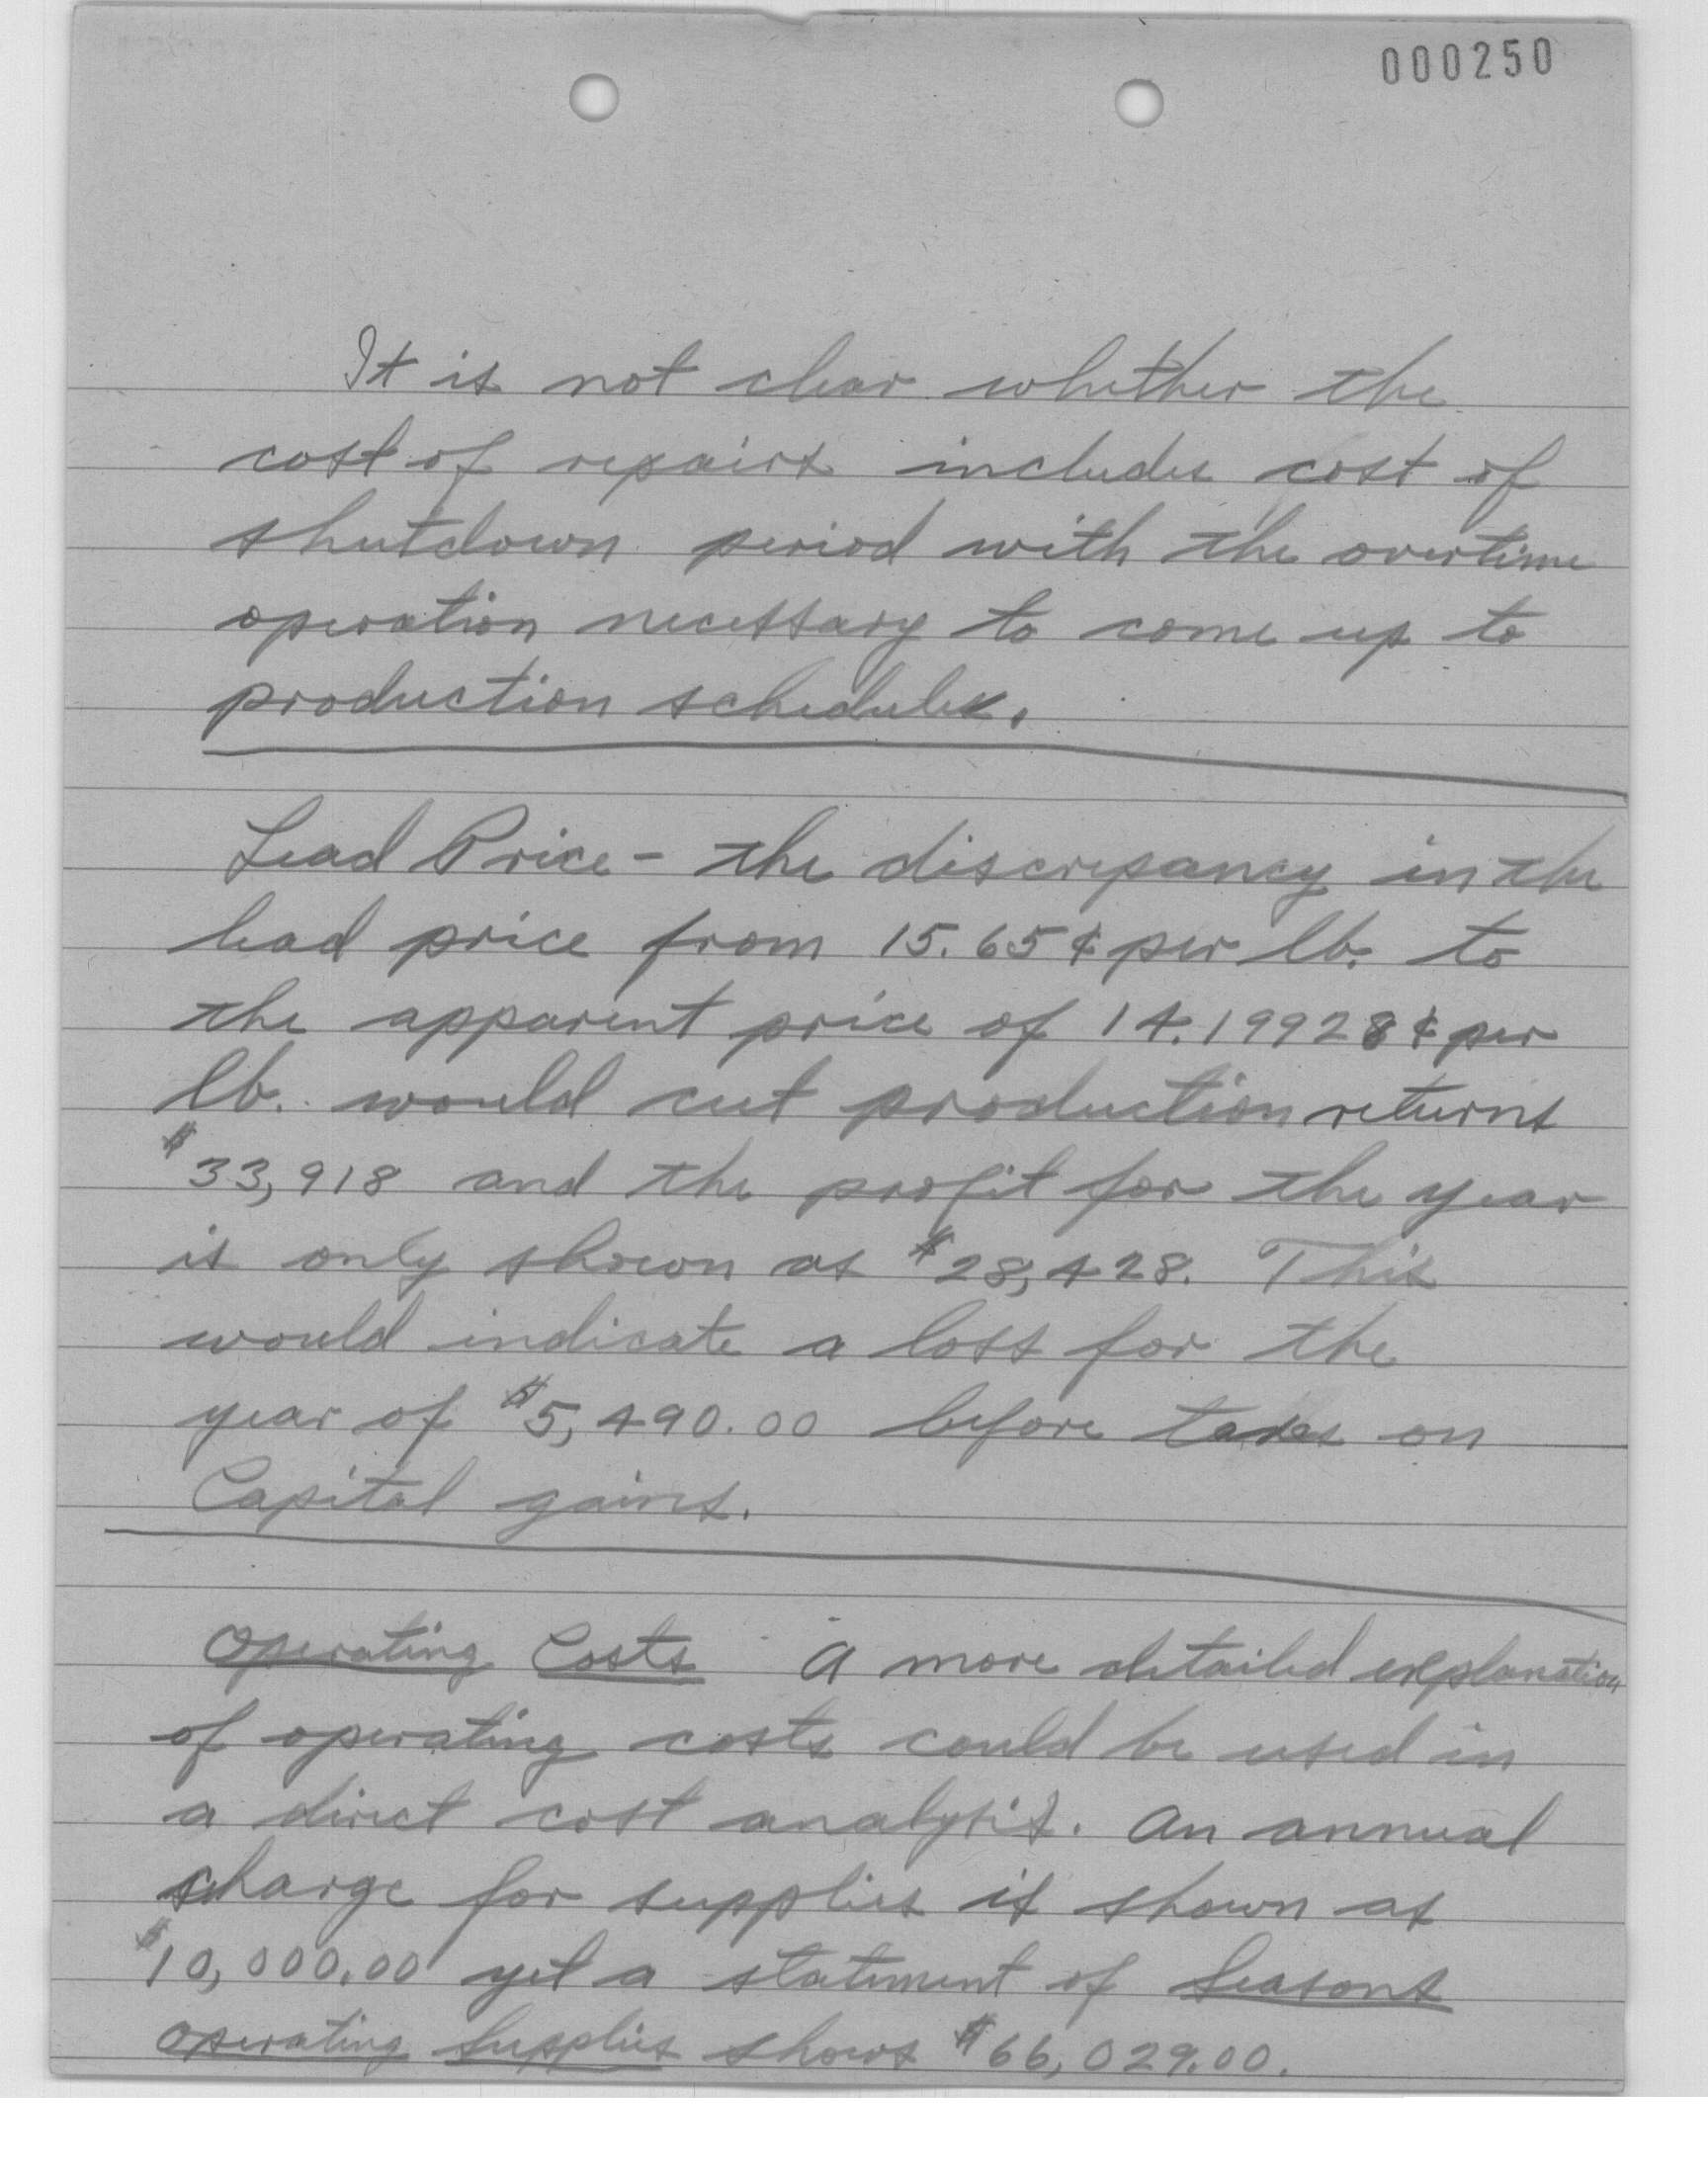 000250
It is not clear whether the
cost of repairs includes cost of
shutdown period with the overtime
operation necessary to come up to
production schedules.
Lead Price - the discrepancy in the
lead price from 15.65¢ per lb. to
the apparent price of 14.19928¢ per
lb. would cut production returns
$33,918 and the profit for the year
is only shown as $28,428. This
would indicate a loss for the
year of $5,490.00 before taxes on
Capital gains.
Operating Costs A more detailed explanation
of operating costs could be used in
a direct cost analysis. An annual
charge for supplies is shown as
$10,000.00 yet a statement of Seasons
Operating Supplies shows $66,029.00.